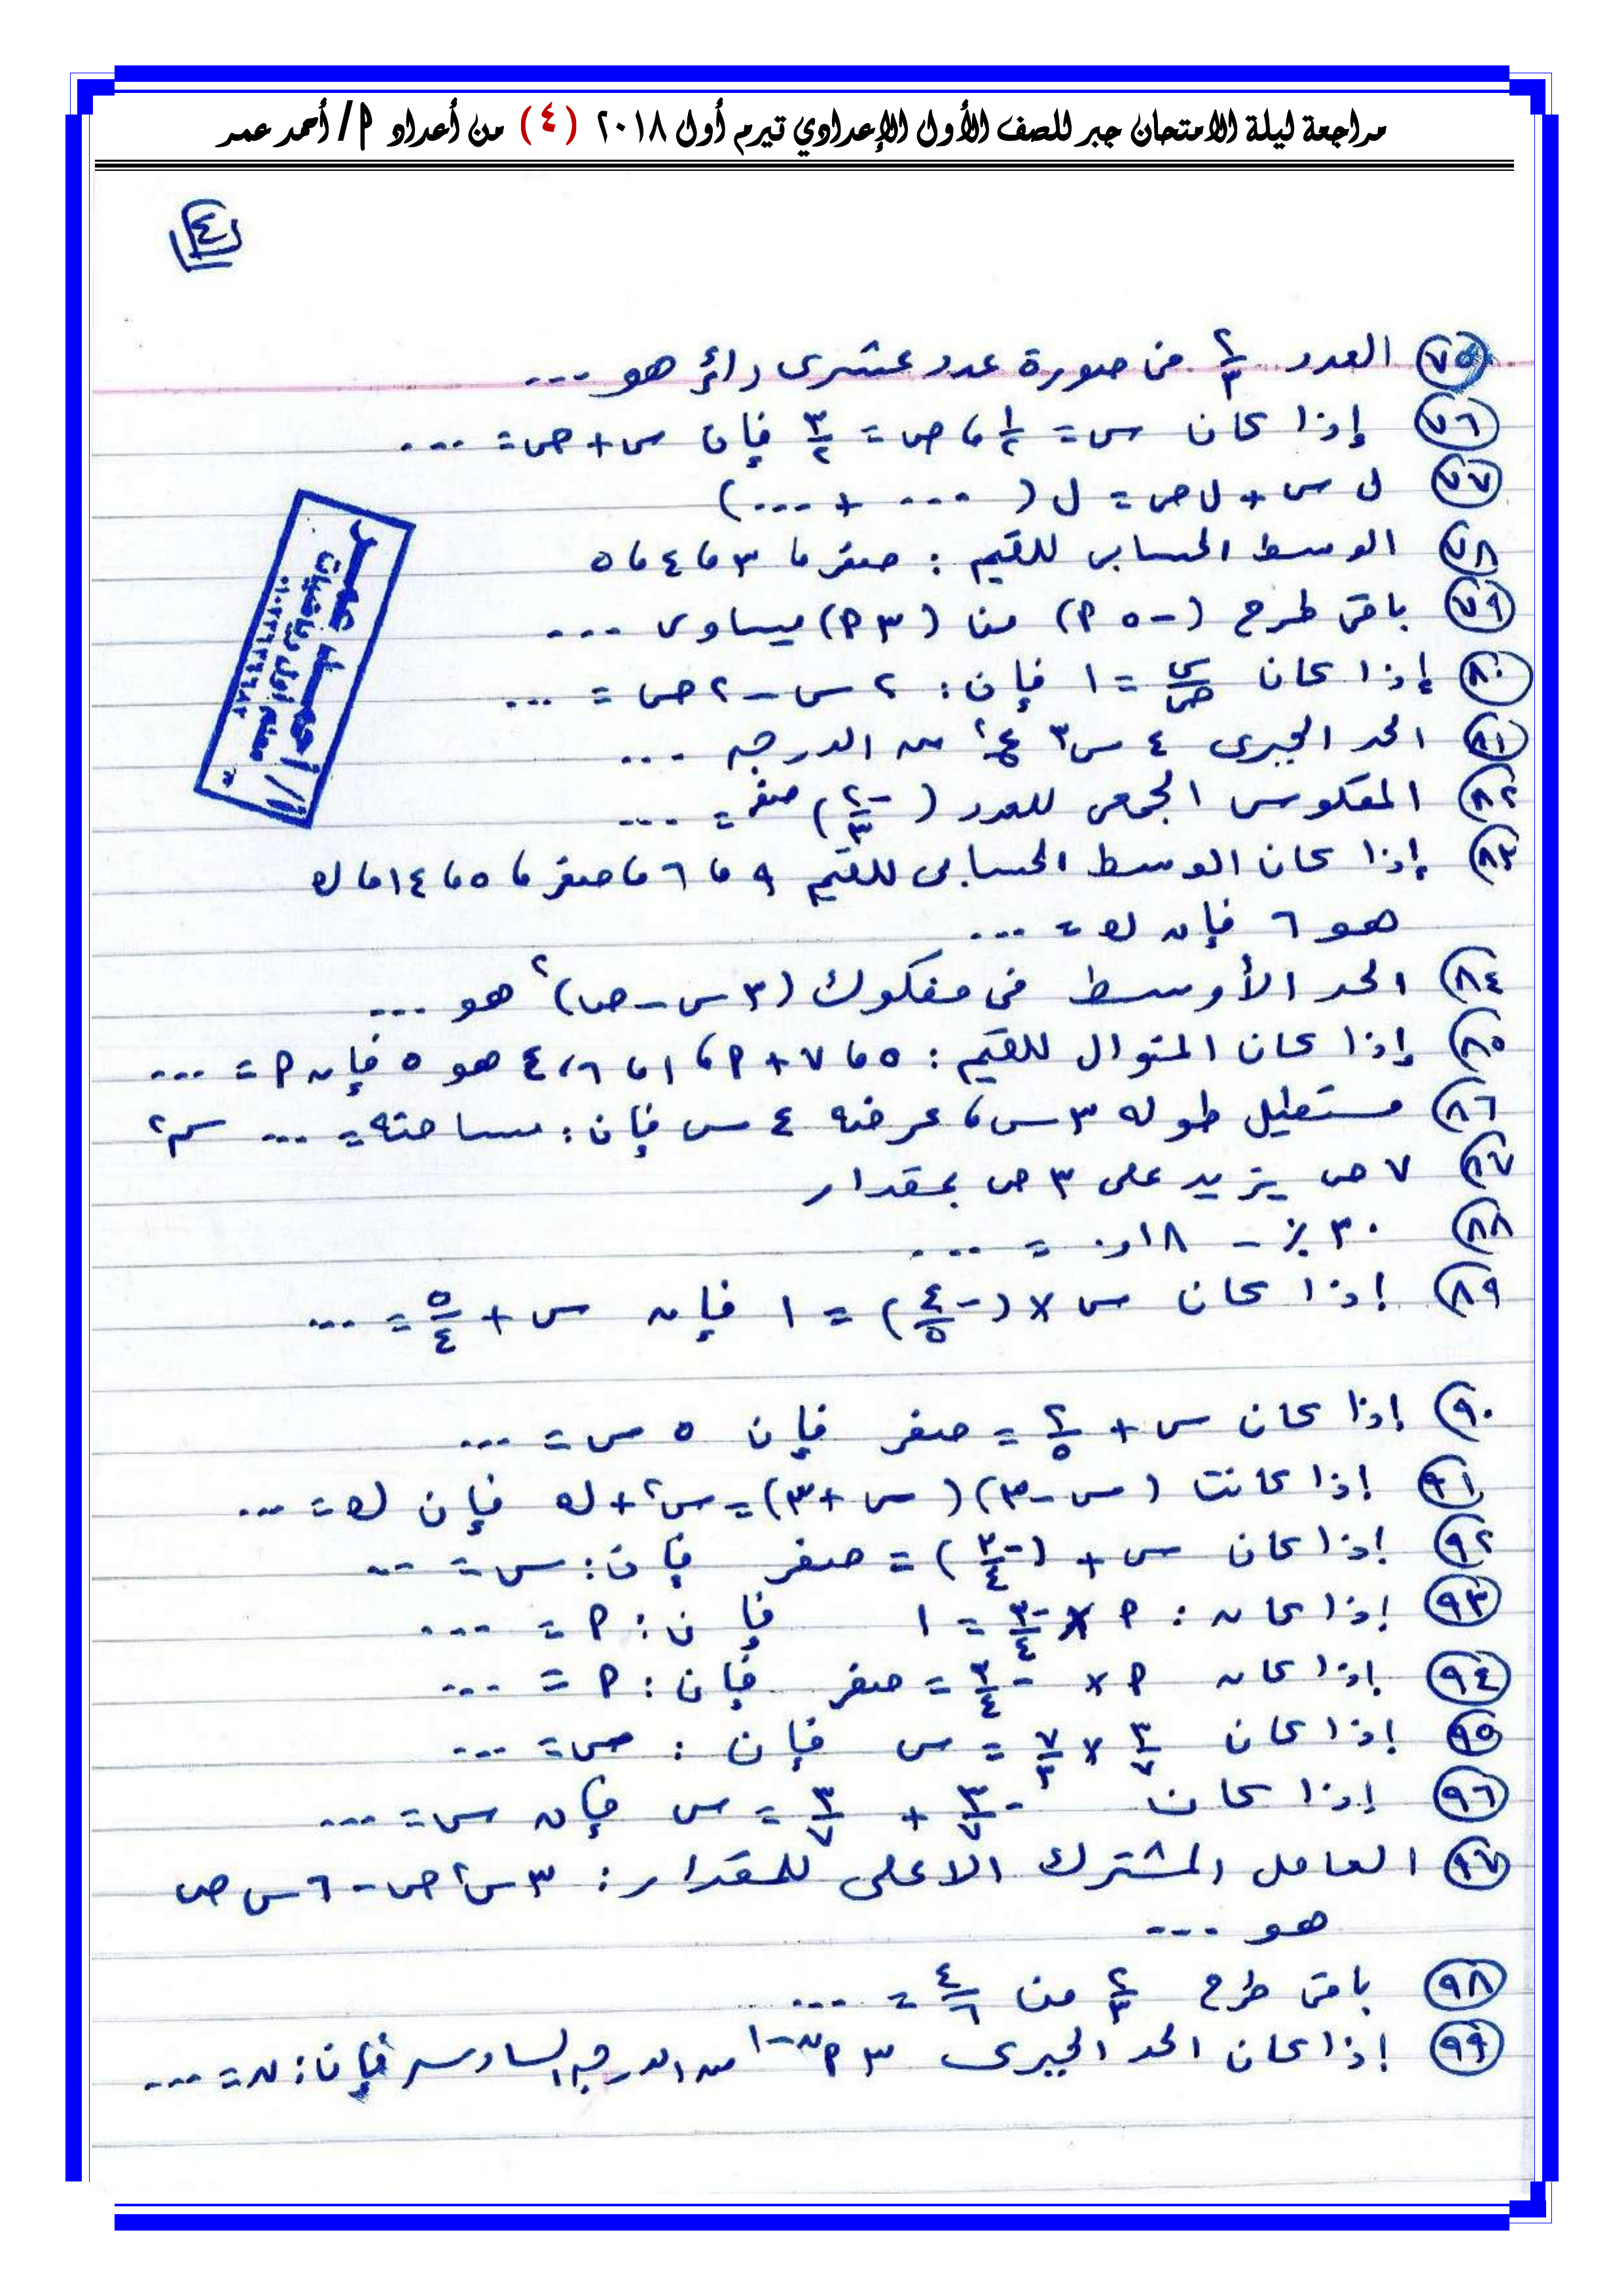 مراجعة ليلة الامتحان جبر للصف الأول الإعدادي تيرم أول ٢٠١٨ (٤) من أعداد أ/ أحمد عمر
٤
٧٥ العدد ٢/٣ فى صورة عدد عشرى دائر هو ...
٧٦ إذا كان س = ١/٢ ، ص = ٣/٢ فإن س + ص = ...
٧٧ ل س + ل ص = ل ( ... + ... )
٧٨ الوسط الحسابى للقيم : صفر ، ٣ ، ٤ ، ٥
٧٩ باقى طرح (-٥ أ) من (٣ أ) يساوى ...
٨٠ إذا كان س/ص = ١ فإن : ٢ س - ٢ ص = ...
٨١ الحد الجبرى ٤ س٣ ع٢ من الدرجه ...
٨٢ المعكوس الجمعى للعدد (-٢/٣)صفر = ...
٨٣ إذا كان الوسط الحسابى للقيم ٩ ، ٦ ، صفر ، ٥ ، ١٤ ، ك
هو ٦ فإن ك = ...
٨٤ الحد الأوسط فى مفكوك (٣ س - ص)٢ هو ...
٨٥ إذا كان المنوال للقيم : ٥ ، ٧ + أ ، ١ ، ٦ ، ٤ هو ٥ فإن أ = ...
٨٦ مستطيل طوله ٣ س ، عرضه ٤ س فإن : مساحته = ... سم٢
٨٧ ٧ ص يزيد على ٣ ص بمقدار
٨٨ ٣٠ ٪ - ٠,١٨ = ...
٨٩ إذا كان س × (-٤/٥) = ١ فإن س + ٥/٤ = ...
٩٠ إذا كان س + ٢/٥ = صفر فإن ٥ س = ...
٩١ إذا كانت (س - ٣) (س + ٣) = س٢ + ك فإن ك = ...
٩٢ إذا كان س + (-٣/٤) = صفر فإن : س = ...
٩٣ إذا كان : أ × -٣/٤ = ١ فإن : أ = ...
٩٤ إذا كان أ × -٣/٤ = صفر فإن : أ = ...
٩٥ إذا كان ٣/٧ × ٧/٣ = س فإن : س = ...
٩٦ إذا كان -٣/٧ + ٣/٧ = س فإن س = ...
٩٧ العامل المشترك الاعلى للمقدار : ٣ س٢ ص - ٦ س ص
هو ...
٩٨ باقى طرح ٢/٣ من ٤/٦ = ...
٩٩ إذا كان الحد الجبرى ٣ أن-١ من الدرجه السادسه فإن : ن = ...
أ/ أحمد عمر
معلم أول رياضيات